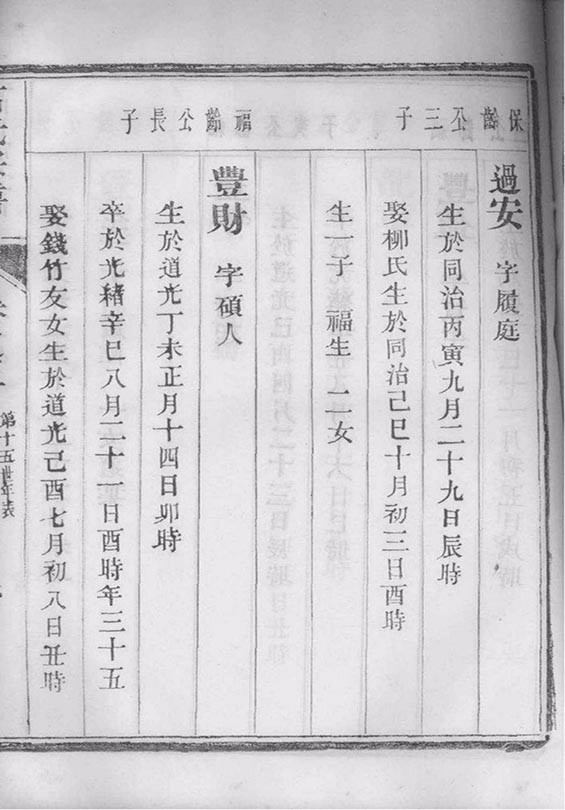 保齡公三子
過安 字履庭
生於同治丙寅九月二十九日辰時
娶柳氏生於同治己巳十月初三日酉時
生一子 福生 二女
福齡公長子
豐財 字碩人
生於道光丁未正月十四日卯時
卒於光緒辛巳八月二十一日酉時年三十五
娶錢竹友女生於道光己酉七月初八日丑時
第十五世年表